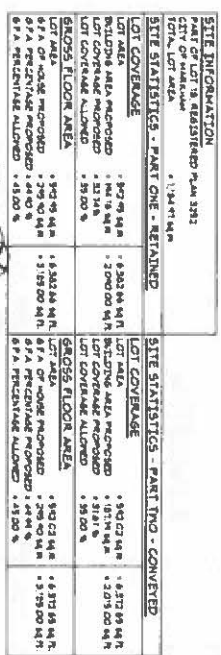 SITE INFORMATION
PART OF LOT 18 REGISTERED PLAN 3292
CITY OF MARKHAM
TOTAL LOT AREA = 1,184.97 SQ.M
SITE STATISTICS - PART ONE - RETAINED
LOT COVERAGE
LOT AREA = 592.95 SQ.M = 6,382.66 SQ.FT.
BUILDING AREA PROPOSED = 194.16 SQ.M = 2,090.00 SQ.FT.
LOT COVERAGE PROPOSED = 32.74 %
LOT COVERAGE ALLOWED = 35.00 %
GROSS FLOOR AREA
LOT AREA = 592.95 SQ.M = 6,382.66 SQ.FT.
G.F.A. OF HOUSE PROPOSED = 295.90 SQ.M = 3,185.00 SQ.FT.
G.F.A. PERCENTAGE PROPOSED = 49.90 %
G.F.A. PERCENTAGE ALLOWED = 45.00 %
SITE STATISTICS - PART TWO - CONVEYED
LOT COVERAGE
LOT AREA = 592.02 SQ.M = 6,372.65 SQ.FT.
BUILDING AREA PROPOSED = 187.19 SQ.M = 2,015.00 SQ.FT.
LOT COVERAGE PROPOSED = 31.61 %
LOT COVERAGE ALLOWED = 35.00 %
GROSS FLOOR AREA
LOT AREA = 592.02 SQ.M = 6,372.65 SQ.FT.
G.F.A. OF HOUSE PROPOSED = 295.90 SQ.M = 3,185.00 SQ.FT.
G.F.A. PERCENTAGE PROPOSED = 49.98 %
G.F.A. PERCENTAGE ALLOWED = 45.00 %